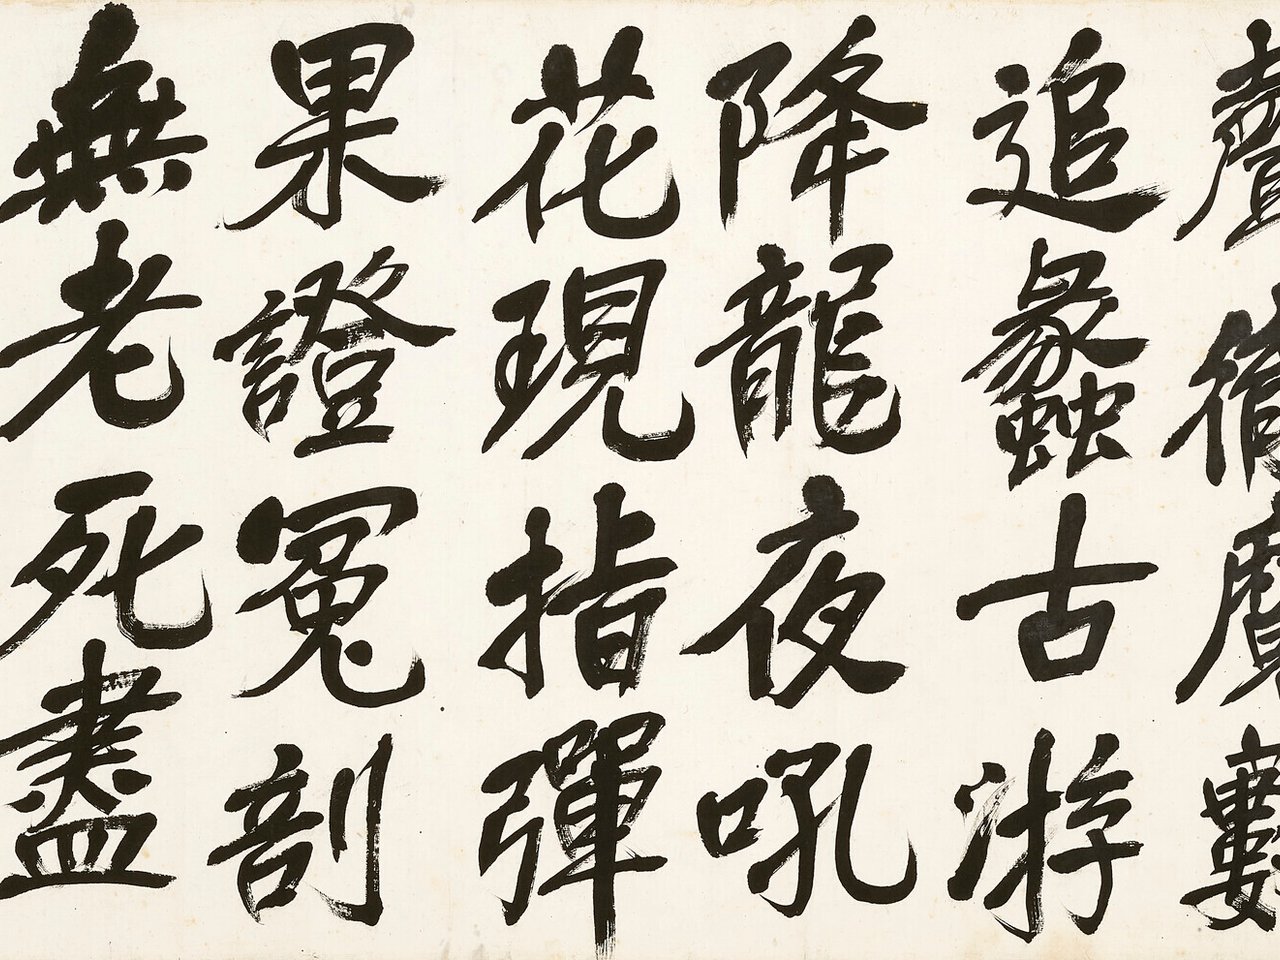 追蠡古游
降龍夜吼
花現指彈
果證冤剖
無老死盡